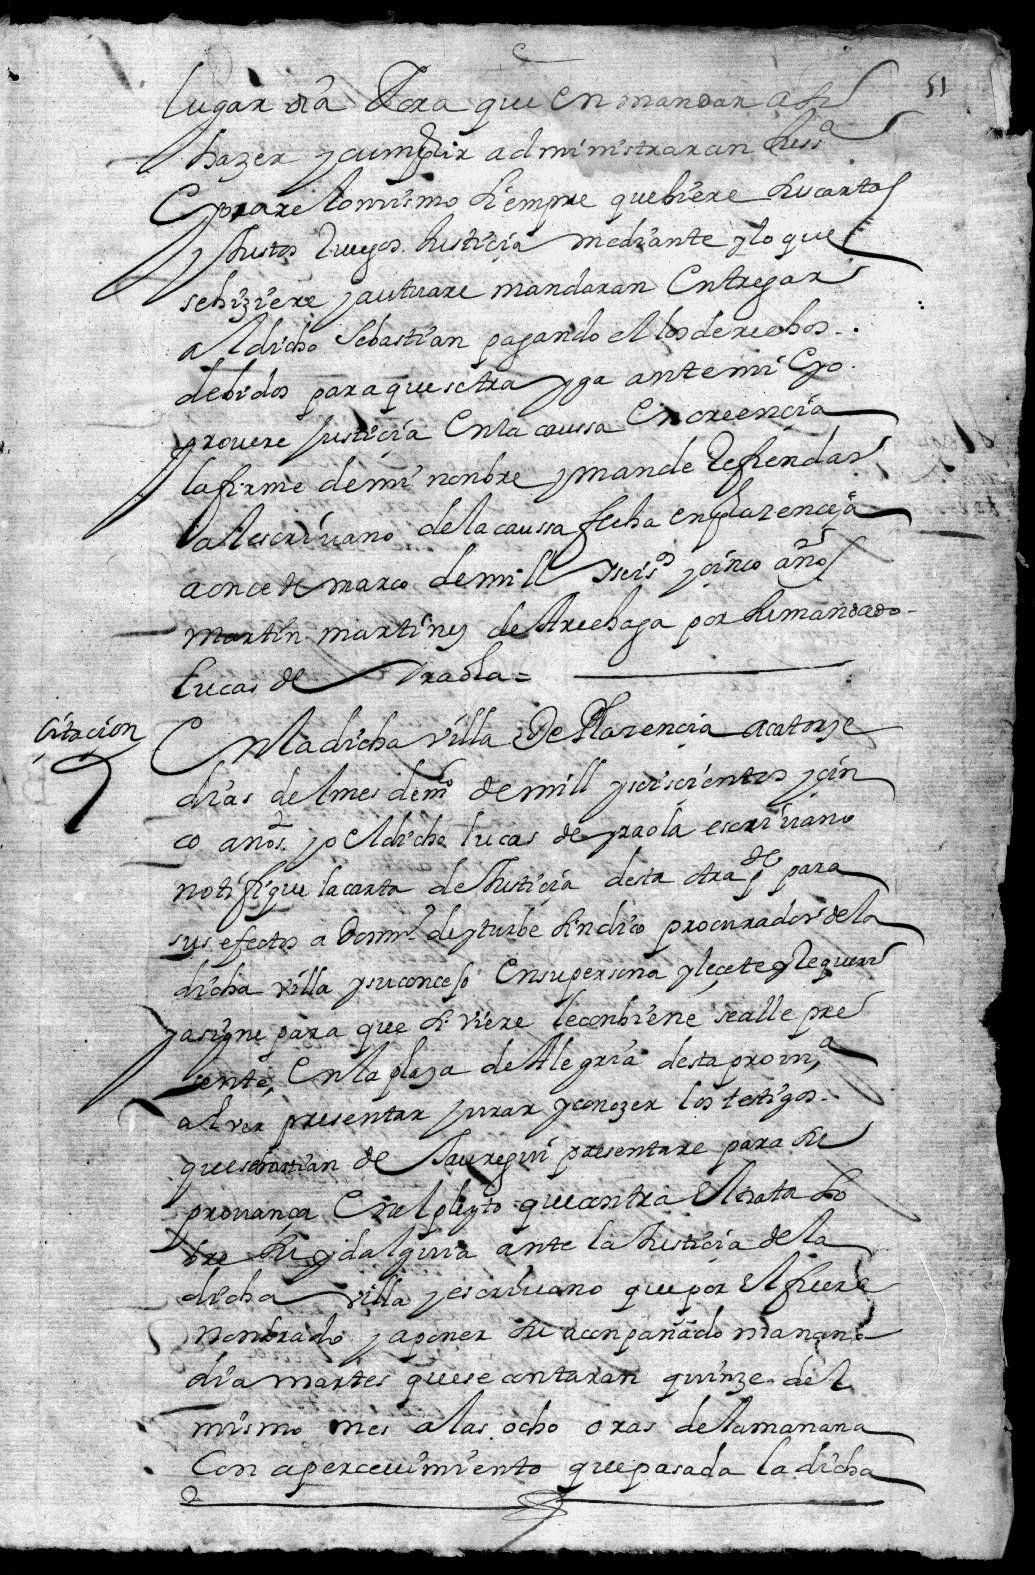 51
lugar dia E ora que en mandar assi
hazer y cumplir administraran Jussª
E yo hare lo mismo siempre que biere sus cartas
y Justos Ruegos Justicia mediante y lo que
se hiziere y autuare mandaran Entregar
al dicho Sebastian pagando el los derechos
debidos para que se trayga ante mi E yo
provere Justicia En la caussa En creencia
la firme de mi nonbre y mande Refrendar
al escrivano de la caussa fecha en plazencia
a once de março de mill y seisº y cinco años
martin martines de Arechaga por su mandado
Lucas de Yraola =
Citacion
En la dicha villa De Plazencia a catorze
dias del mes de mço de mill y seiscientos y cin
co años yo el dicho lucas de yraola escrivano
notifique la carta de Justicia desta otra pte para
sus efectos a Domº de yturbe sindico procurador de la
dicha villa y su concejo En su persona y le çite y Requeri
y asigne para que si viere le conbiene se alle pre
sente En la plaza de Alegria desta provinª
al ver presentar jurar y conozer los testigos
que sebastian de Jauregui presentare para su
provança En el pleyto que contra El trata so
bre su ydalguia ante la Justicia de la
dicha villa y escrivano que por El fuere
nonbrado y a poner su aconpañado manana
dia martes que se contaran quinze del
mismo mes a las ocho oras de la manana
Con apercevimiento que pasada la dicha